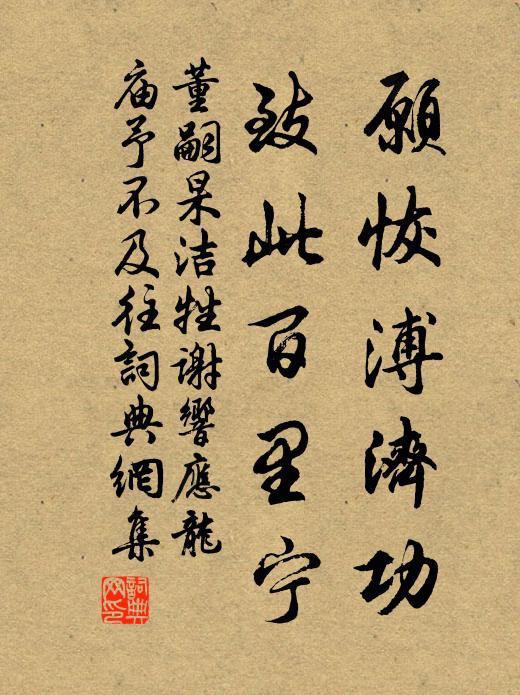 願恢溥濟功
致此百里宁
董嗣杲洁牲謝響應龍
庙予不及往詞典網集
詞典
网印